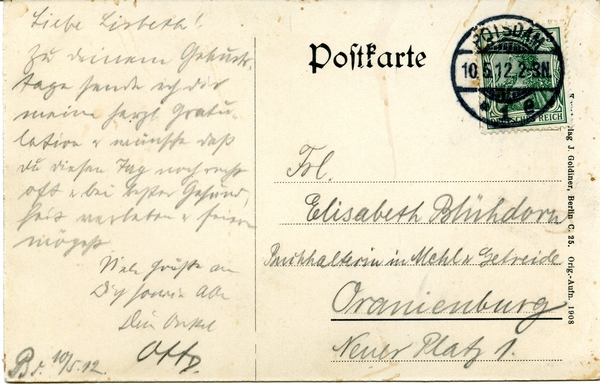 Liebe Lisbeth!
Zu deinem Geburts-
tage sende ich dir
meine herzl. Gratu-
lation & wünsche daß
du diesen Tag noch recht
oft & bei bester Gesund-
heit verleben & feiern
mögest
Viele Grüße an
Dich sowie Alle
Dein Onkel
Otto
10/5.12.
Postkarte
POTSDAM
10.5.12.2-3N.
1 e
DEUTSCHES REICH
Frl.
Elisabeth Blühdorn
Buchhalterin in Mehl & Getreide
Oranienburg
Neuer Platz 1.
J. Goldiner, Berlin C. 25. Orig.-Aufn. 1908